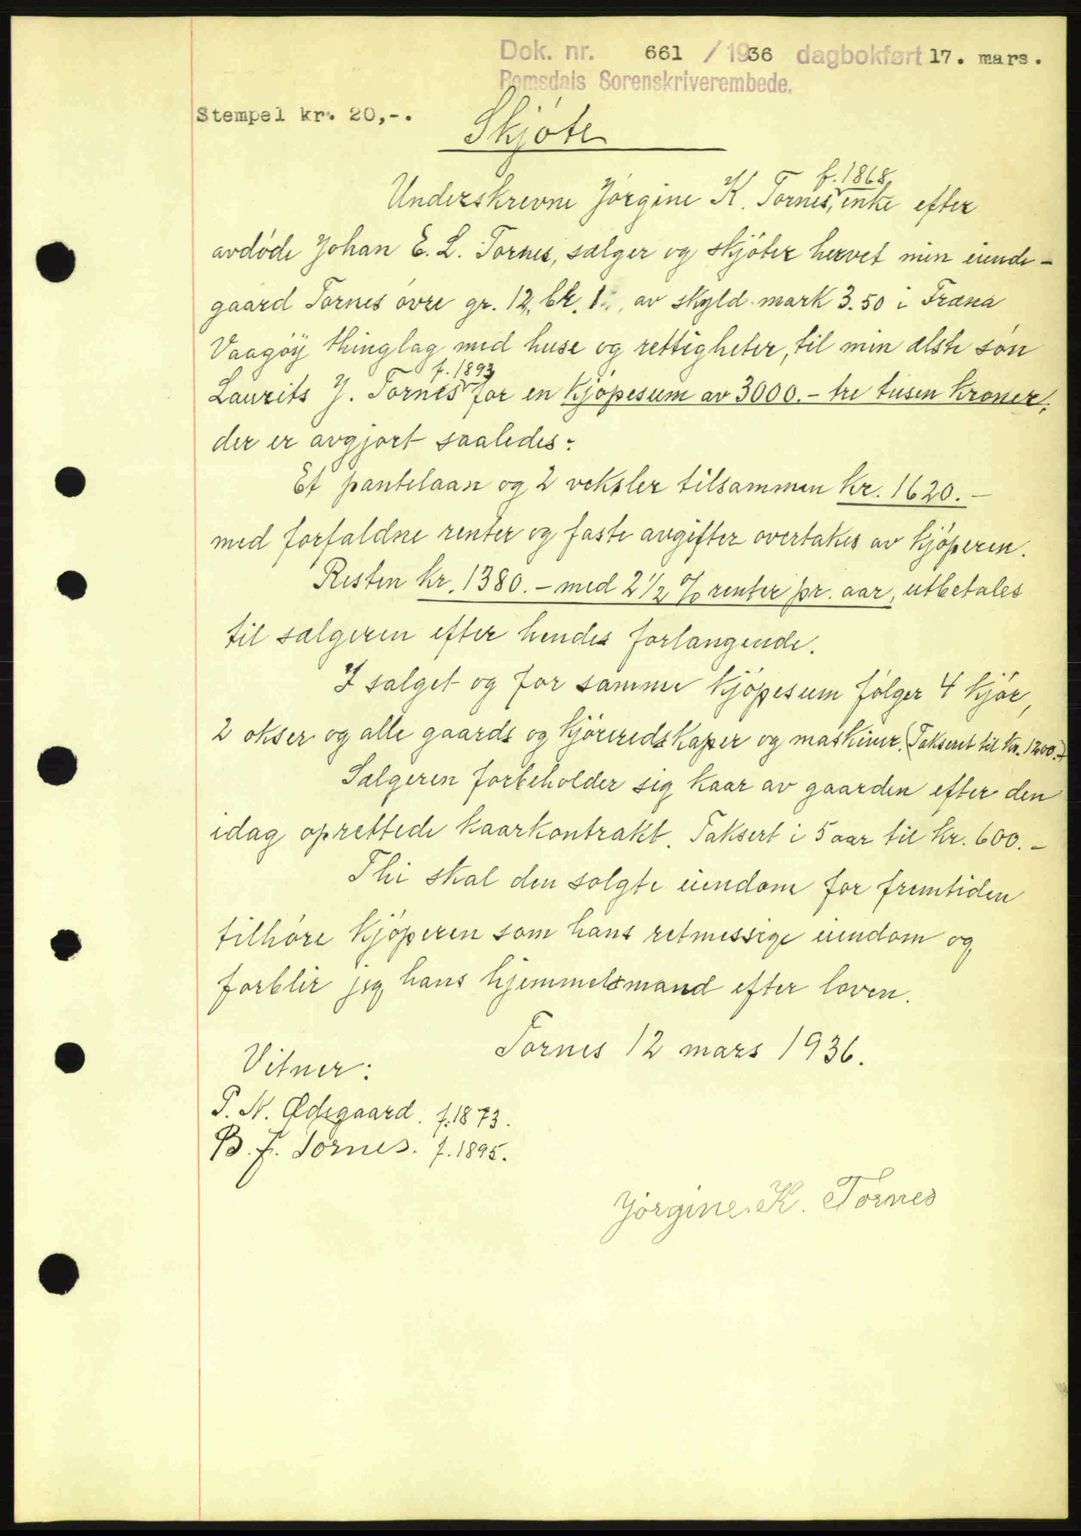 Dok. nr. 661 / 1936 dagbokført 17. mars.
Romsdals Sorenskriverembede.
Stempel kr. 20,-.
Skjøte
f. 1868,
Underskrevne Jørgine K. Tornes, enke efter
avdøde Johan E. L. Tornes, sælger og skjøter hervet min eiende-
gaard Tornes øvre gr. 12, br. 1, av skyld mark 3.50 i Fræna
Vaagøy thinglag med huse og rettigheter, til min ælste søn
f. 1893
Laurits J. Tornes for en kjøpesum av 3000.- tre tusen kroner,
der er avgjort saaledes:
Et pantelaan og 2 veksler tilsammen kr. 1620.-
med forfaldne renter og faste avgifter overtakes av kjøperen.
Resten kr. 1380.- med 2 1/2 % renter pr. aar, utbetales
til sælgeren efter hendes forlangende.
I salget og for samme kjøpesum følger 4 kjør,
2 okser og alle gaards og kjøreredskaper og maskiner. (Takseret til kr. 1200.-)
Sælgeren forbeholder sig kaar av gaarden efter den
idag oprettede kaarkontrakt. Taksert i 5 aar til kr. 600.-
Thi skal den solgte eiendom for fremtiden
tilhøre kjøperen som hans retmessige eiendom og
forblir jeg hans hjemmelsmand efter loven.
Tornes 12 mars 1936.
Vitner:
P. N. Ødegaard. f. 1873.
B. J. Tornes. f. 1895.
Jørgine. K. Tornes